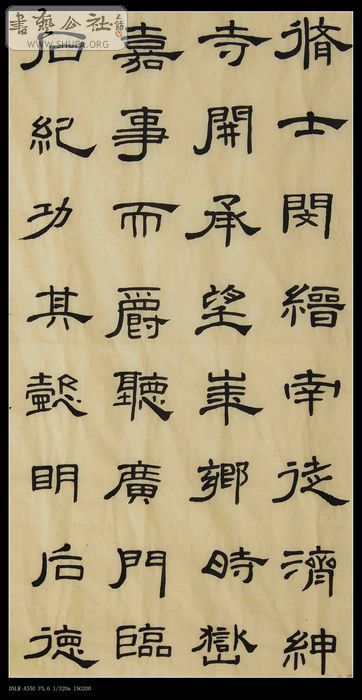 脩士閔縉徒濟紳
寺開承望鄉時嶽
嘉事而爵聽廣門臨
石紀功其懿明后德
書藝公社
WWW.SHUFA.ORG
DSLR-A550 F5.6 1/320s ISO200